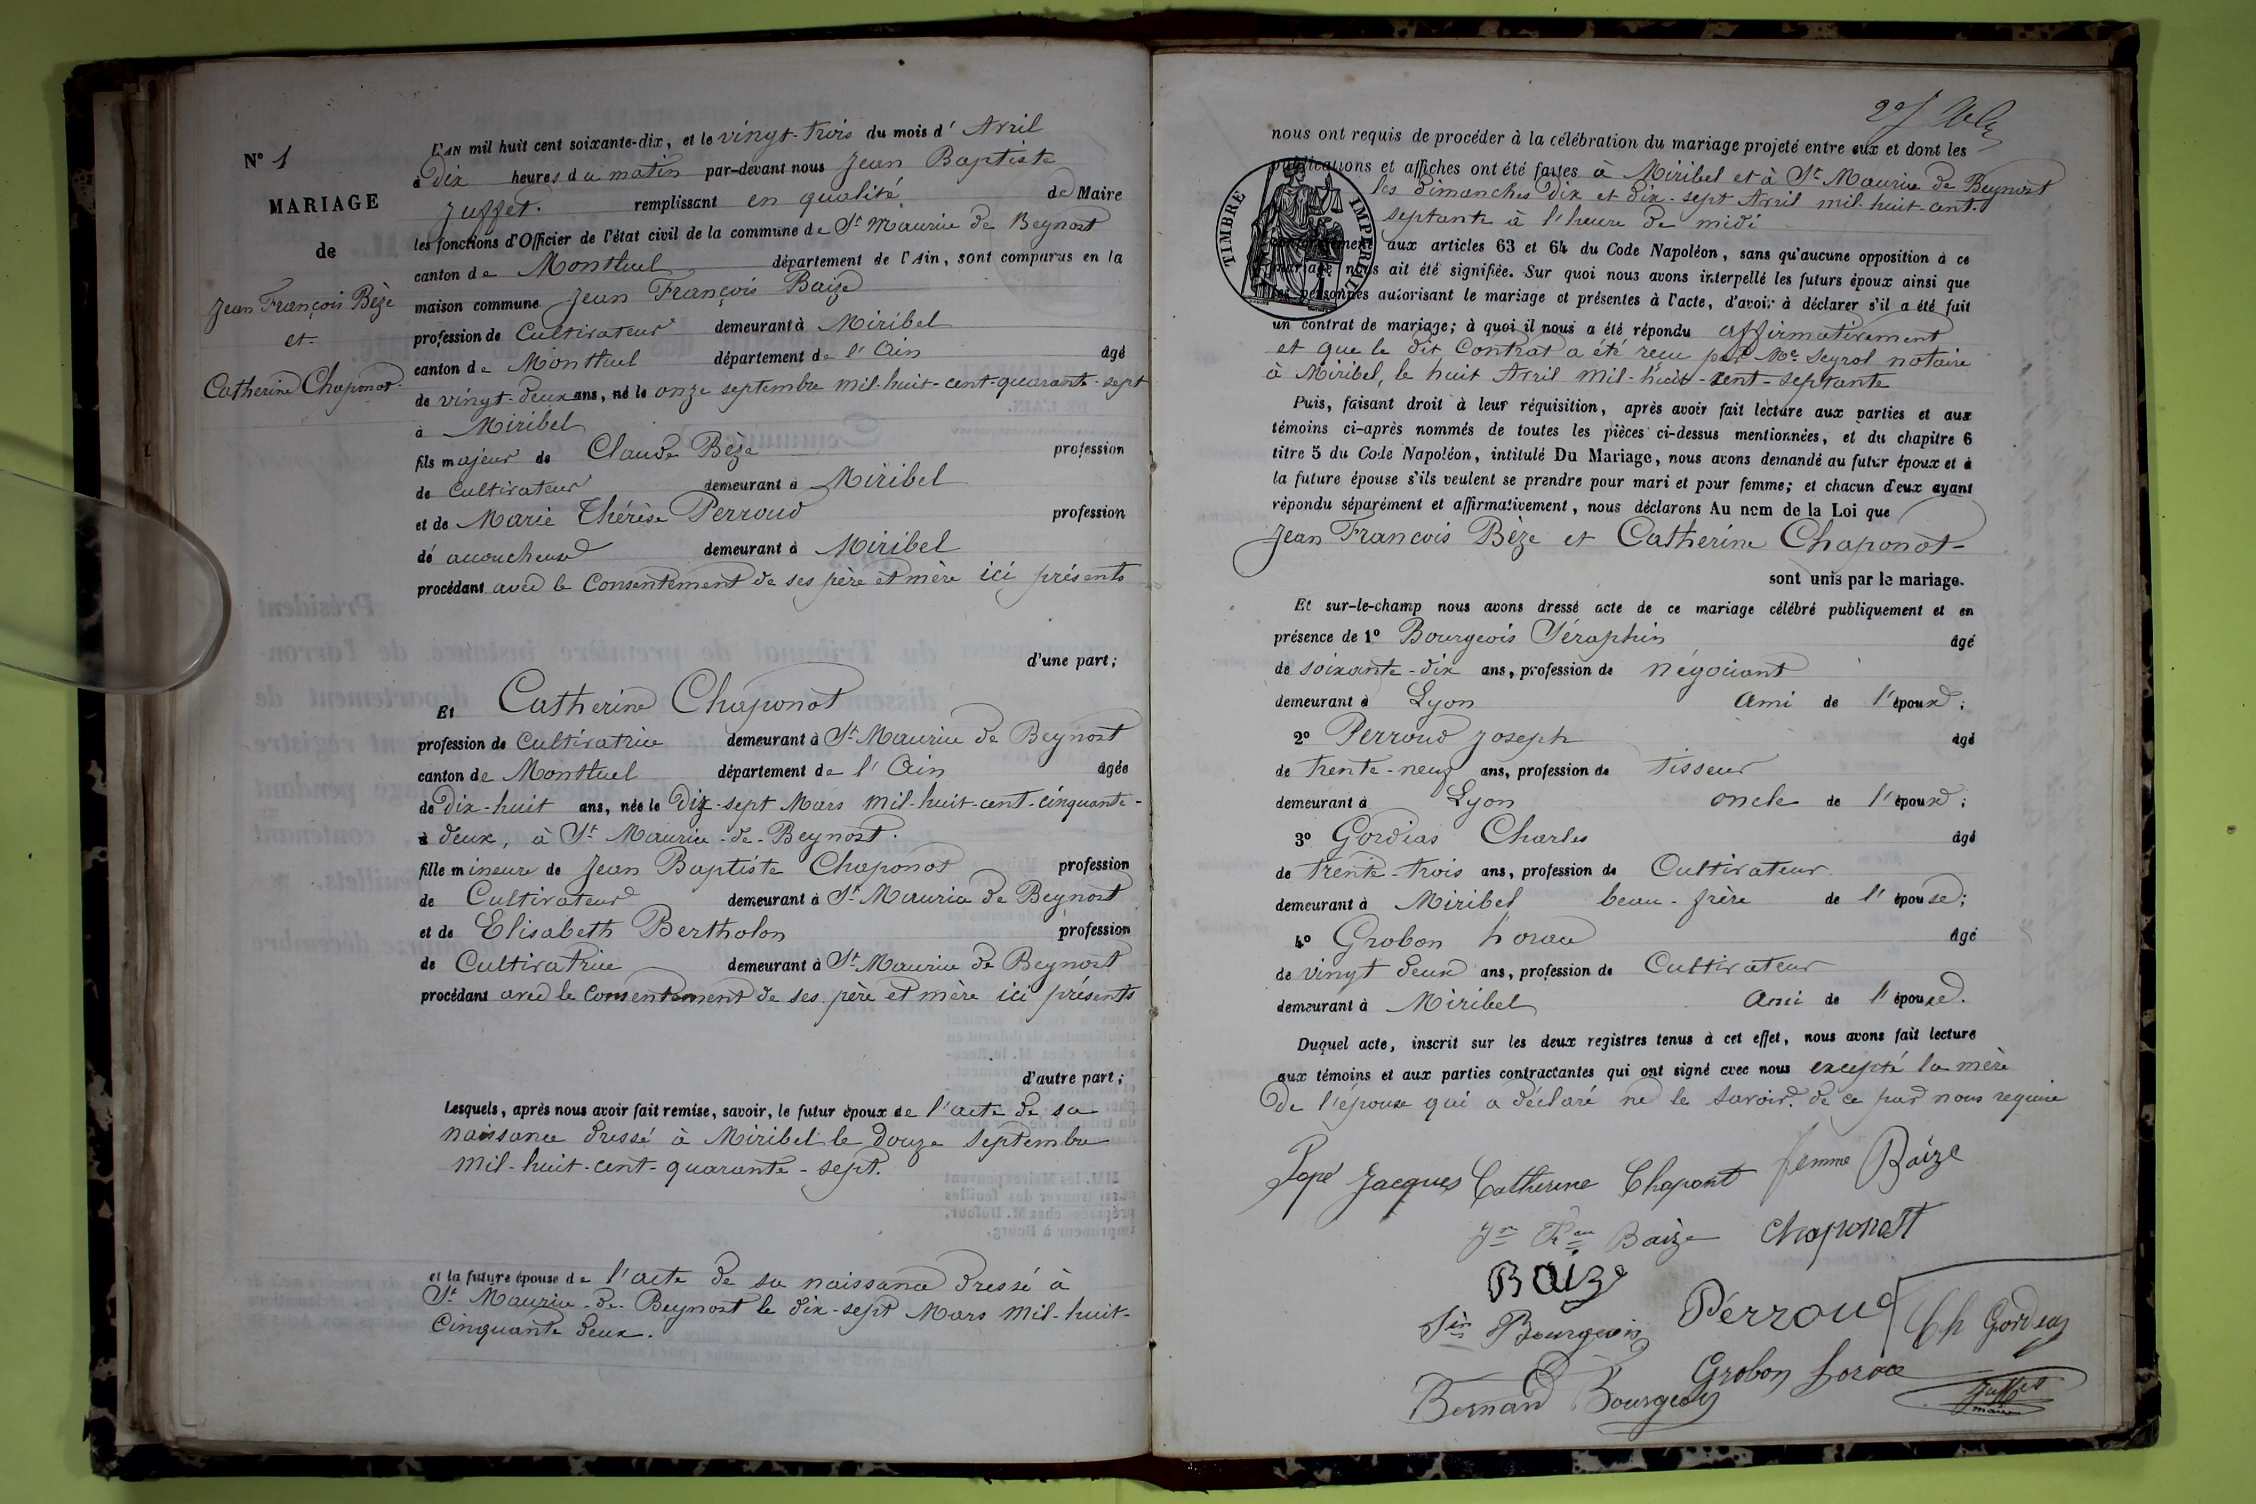 N° 1
MARIAGE
de
Jean François Bèze
et
Catherine Chaponot
L'AN mil huit cent soixante-dix, et le vingt-trois du mois d' Avril
à Dix heures du matin par-devant nous Jean Baptiste
Juffet. remplissant en qualité de Maire
les fonctions d'Officier de l'état civil de la commune de St Maurice de Beynost
canton de Montluel département de l'Ain, sont comparus en la
maison commune Jean François Baize
profession de Cultivateur demeurant à Miribel
canton de Montluel département de l'Ain âgé
de vingt-deux ans, né le onze septembre mil-huit-cent-quarante-sept
à Miribel
fils majeur de Claude Bèze profession
de Cultivateur demeurant à Miribel
et de Marie Thérèse Perroud profession
de accoucheuse demeurant à Miribel
procédant avec le Consentement de ses père et mère ici présents
d'une part;
Et Catherine Chaponot
profession de Cultivatrice demeurant à St Maurice de Beynost
canton de Montluel département de l'Ain âgée
de Dix-huit ans, née le Dix-sept Mars mil-huit-cent-cinquante-
à deux, à St Maurice-de-Beynost.
fille mineure de Jean Baptiste Chaponot profession
de Cultivateur demeurant à St Maurice de Beynost
et de Elisabeth Bertholon profession
de Cultivatrice demeurant à St Maurice de Beynost
procédant avec le Consentement de ses père et mère ici présents
d'autre part;
Lesquels, après nous avoir fait remise, savoir, le futur époux de l'acte de sa
naissance dressé à Miribel le douze septembre
mil-huit-cent-quarante-sept.
et la future épouse de l'acte de sa naissance dressé à
St Maurice-de-Beynost le dix-sept Mars mil-huit-
cinquante deux.
nous ont requis de procéder à la célébration du mariage projeté entre eux et dont les
publications et affiches ont été faites à Miribel et à St Maurice de Beynost
les dimanches dix et dix-sept Avril mil-huit-cent-
septante à l'heure de midi
TIMBRE IMPERIAL
conformément aux articles 63 et 64 du Code Napoléon, sans qu'aucune opposition à ce
mariage nous ait été signifiée. Sur quoi nous avons interpellé les futurs époux ainsi que
les personnes autorisant le mariage et présentes à l'acte, d'avoir à déclarer s'il a été fait
un contrat de mariage; à quoi il nous a été répondu affirmativement
et que le dit Contrat a été reçu par Me Seyrol notaire
à Miribel, le huit Avril mil-huit-cent-septante
Puis, faisant droit à leur réquisition, après avoir fait lecture aux parties et aux
témoins ci-après nommés de toutes les pièces ci-dessus mentionnées, et du chapitre 6
titre 5 du Code Napoléon, intitulé Du Mariage, nous avons demandé au futur époux et à
la future épouse s'ils veulent se prendre pour mari et pour femme; et chacun d'eux ayant
répondu séparément et affirmativement, nous déclarons Au nom de la Loi que
Jean Francois Bèze et Catherine Chaponot-
sont unis par le mariage.
Et sur-le-champ nous avons dressé acte de ce mariage célébré publiquement et en
présence de 1° Bourgeois Séraphin âgé
de soixante-dix ans, profession de négociant
demeurant à Lyon Ami de l'époux;
2° Perroud Joseph âgé
de trente-neuf ans, profession de tisseur
demeurant à Lyon oncle de l'époux;
3° Gordias Charles âgé
de trente-trois ans, profession de Cultivateur
demeurant à Miribel beau-frère de l'épouse;
4° Grobon horace âgé
de vingt deux ans, profession de Cultivateur
demeurant à Miribel Ami de l'époux.
Duquel acte, inscrit sur les deux registres tenus à cet effet, nous avons fait lecture
aux témoins et aux parties contractantes qui ont signé avec nous excepté la mère
de l'épouse qui a déclaré ne le savoir. de ce par nous requise
Papé Jacques Catherine Chapont femme Baize
Jn Fcn Baize Chaponett
Baize
Sin Bourgeois Pérroud Ch Gordeas
Bernard Bourgeois Grobon horace Juffet
maire